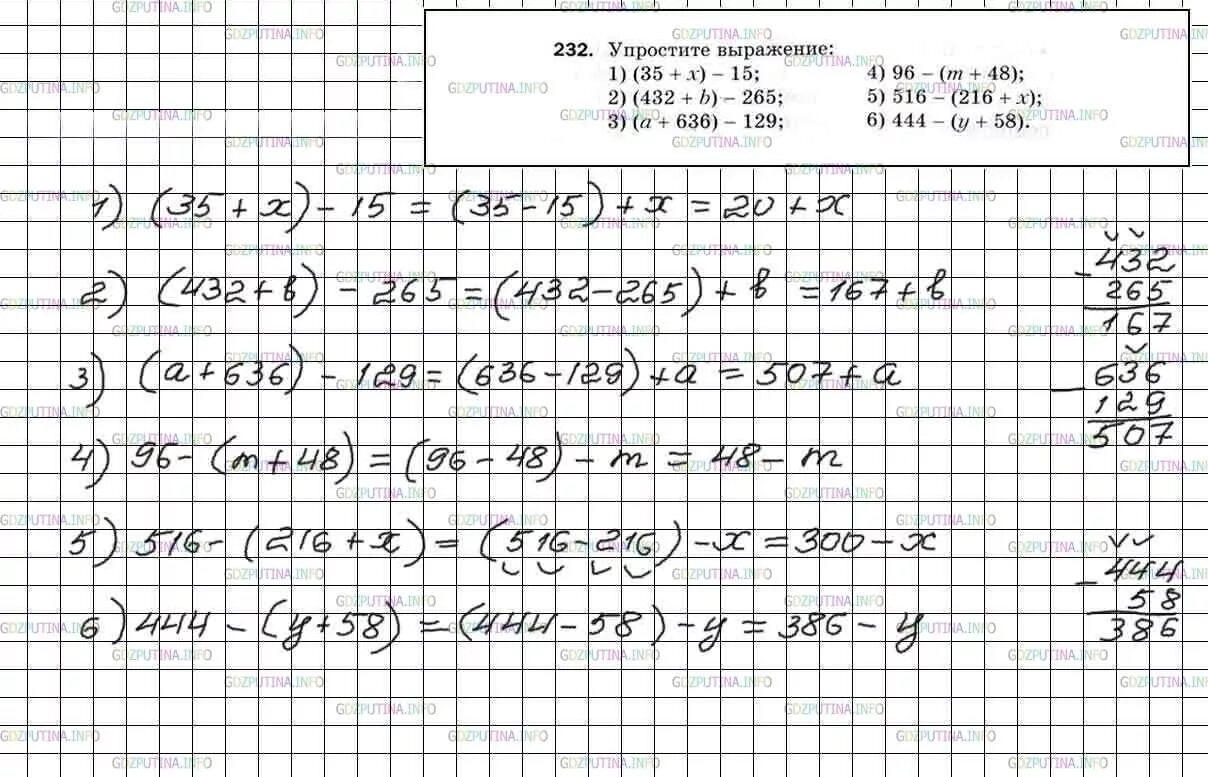 232. Упростите выражение:
1) (35 + x) – 15;
2) (432 + b) – 265;
3) (a + 636) – 129;
4) 96 – (m + 48);
5) 516 – (216 + x);
6) 444 – (y + 58).
1) (35 + x) - 15 = (35 - 15) + x = 20 + x
2) (432 + b) - 265 = (432 - 265) + b = 167 + b
- 432
265
167
3) (a + 636) - 129 = (636 - 129) + a = 507 + a
- 636
129
507
4) 96 - (m + 48) = (96 - 48) - m = 48 - m
5) 516 - (216 + x) = (516 - 216) - x = 300 - x
6) 444 - (y + 58) = (444 - 58) - y = 386 - y
- 444
58
386
GDZPUTINA.INFO